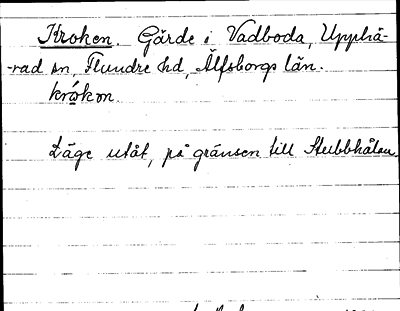 Kroken. Gärde i Vadboda, Upphä-
-rad sn, Flundre hd, Älfsborgs län.
krókon.
Läge utåt, på gränsen till Stubbhålan.